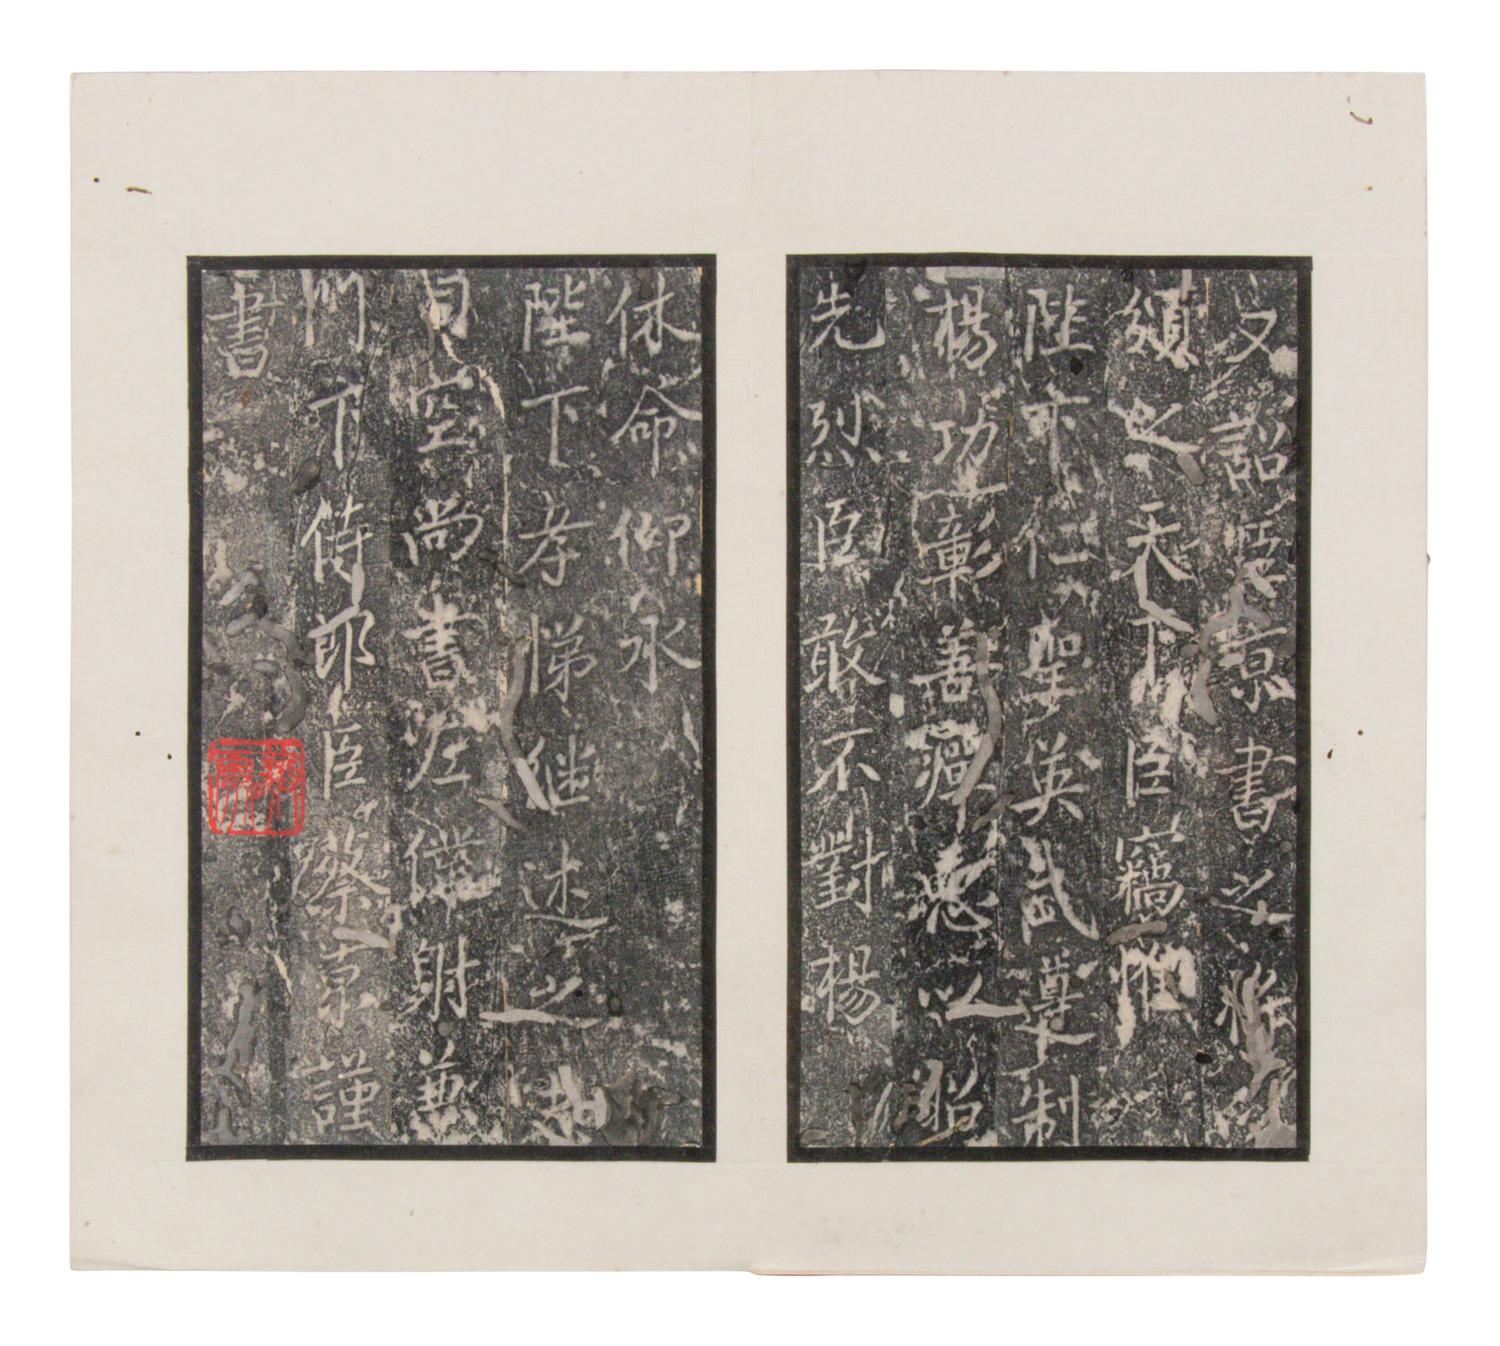 又詔臣京書之將以
頒之天下臣竊惟
陛下仁聖英武遵制
楊功彰善癉惡以昭
先烈臣敢不對楊
休命仰承
陛下孝悌継述之志
司空尚書左僕射兼
門下侍郎臣蔡京謹
書